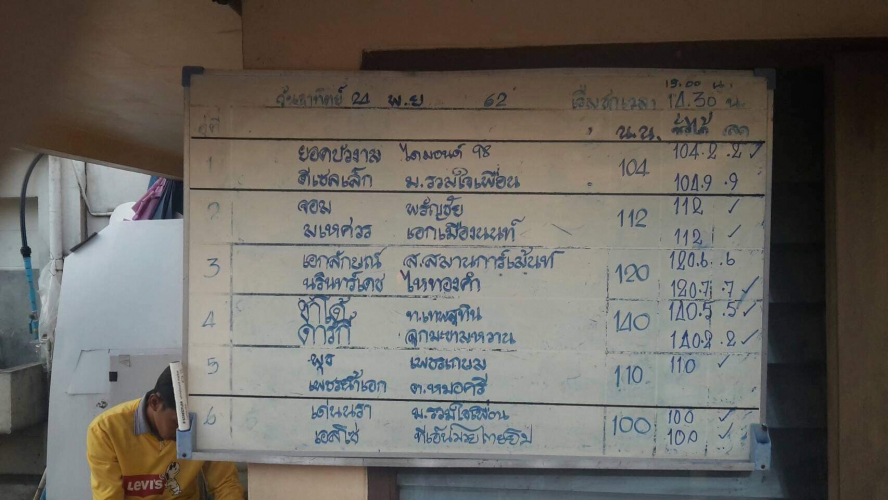 วันอาทิตย์ 24 พ.ย 62 เริ่มชกเวลา 15.00 น. 14.30 น
คู่ที่ น.น. ชั่งได้ ลด
1 ยอดบัวงาม ไดมอนด์ 98 104 104.2 .2 ✓
ดีเซลเล็ก ม.รวมใจเพื่อน 104.9 .9
2 จอม พรัญชัย 112 112 ✓
มเหศวร เอกเมืองนนท์ 112 ✓
3 เอกลักษณ์ ส.สมานการ์เม้นท์ 120 120.6 .6
นรินทร์เดช ไหทองคำ 120.7 .7 ✓
4 140 140.5 .5 ✓
ลูกมะขามหวาน 140.2 .2 ✓
5 110 110 ✓
ต.หมอศรี
6 เด่นนรา ม.รวมใจเพื่อน 100 100 ✓
เอสโซ่ 100 ✓
LEVI'S